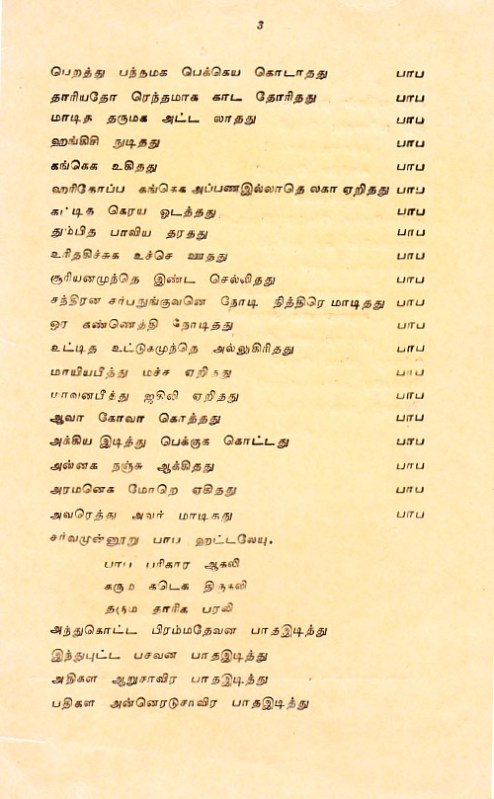 3
பெறத்து பந்தமக பெக்கெய கொடாதது பாப
தாரியதோ ரெந்தமாக காட தோரிதது பாப
மாடித தருமக அட்ட லாதது பாப
ஹங்கிசி நுடிதது பாப
கங்கெக உகிதது பாப
ஹரிகோப்ப கங்கெக அப்பணஇல்லாதெ லகா ஏறிதது பாப
கட்டித கெரய ஒடத்தது பாப
தும்பித பாவிய தரதது பாப
உரிதகிச்சுக உச்செ ஊதது பாப
சூரியனமுந்தெ இண்ட செல்லிதது பாப
சந்திரன சர்பநுங்குவனெ நோடி நித்திரெ மாடிதது பாப
ஒர கண்ணெத்தி நோடிதது பாப
உட்டித உட்டுகமுந்தெ அல்லுகிரிதது பாப
மாயியபீந்து மச்ச ஏறிதது பாப
பாவனபீத்து ஜகிலி ஏறிதது பாப
ஆவா கோவா கொத்தது பாப
அக்கிய இடித்து பெக்குக கொட்டது பாப
அல்னக நஞ்சு ஆக்கிதது பாப
அரமனெக மோறெ ஏகிதது பாப
அவரெத்து அவர் மாடிதது பாப
சர்வமுன்னூறு பாப ஹட்டலேயு.
பாப பரிகார ஆகலி
கரும கடெக திருகலி
தரும தாரிக பரலி
அந்துகொட்ட பிரம்மதேவன பாதஇடித்து
இந்துபுட்ட பசவன பாதஇடித்து
அதிகள ஆறுசாவிர பாதஇடித்து
பதிகள அன்னெரடுசாவிர பாதஇடித்து